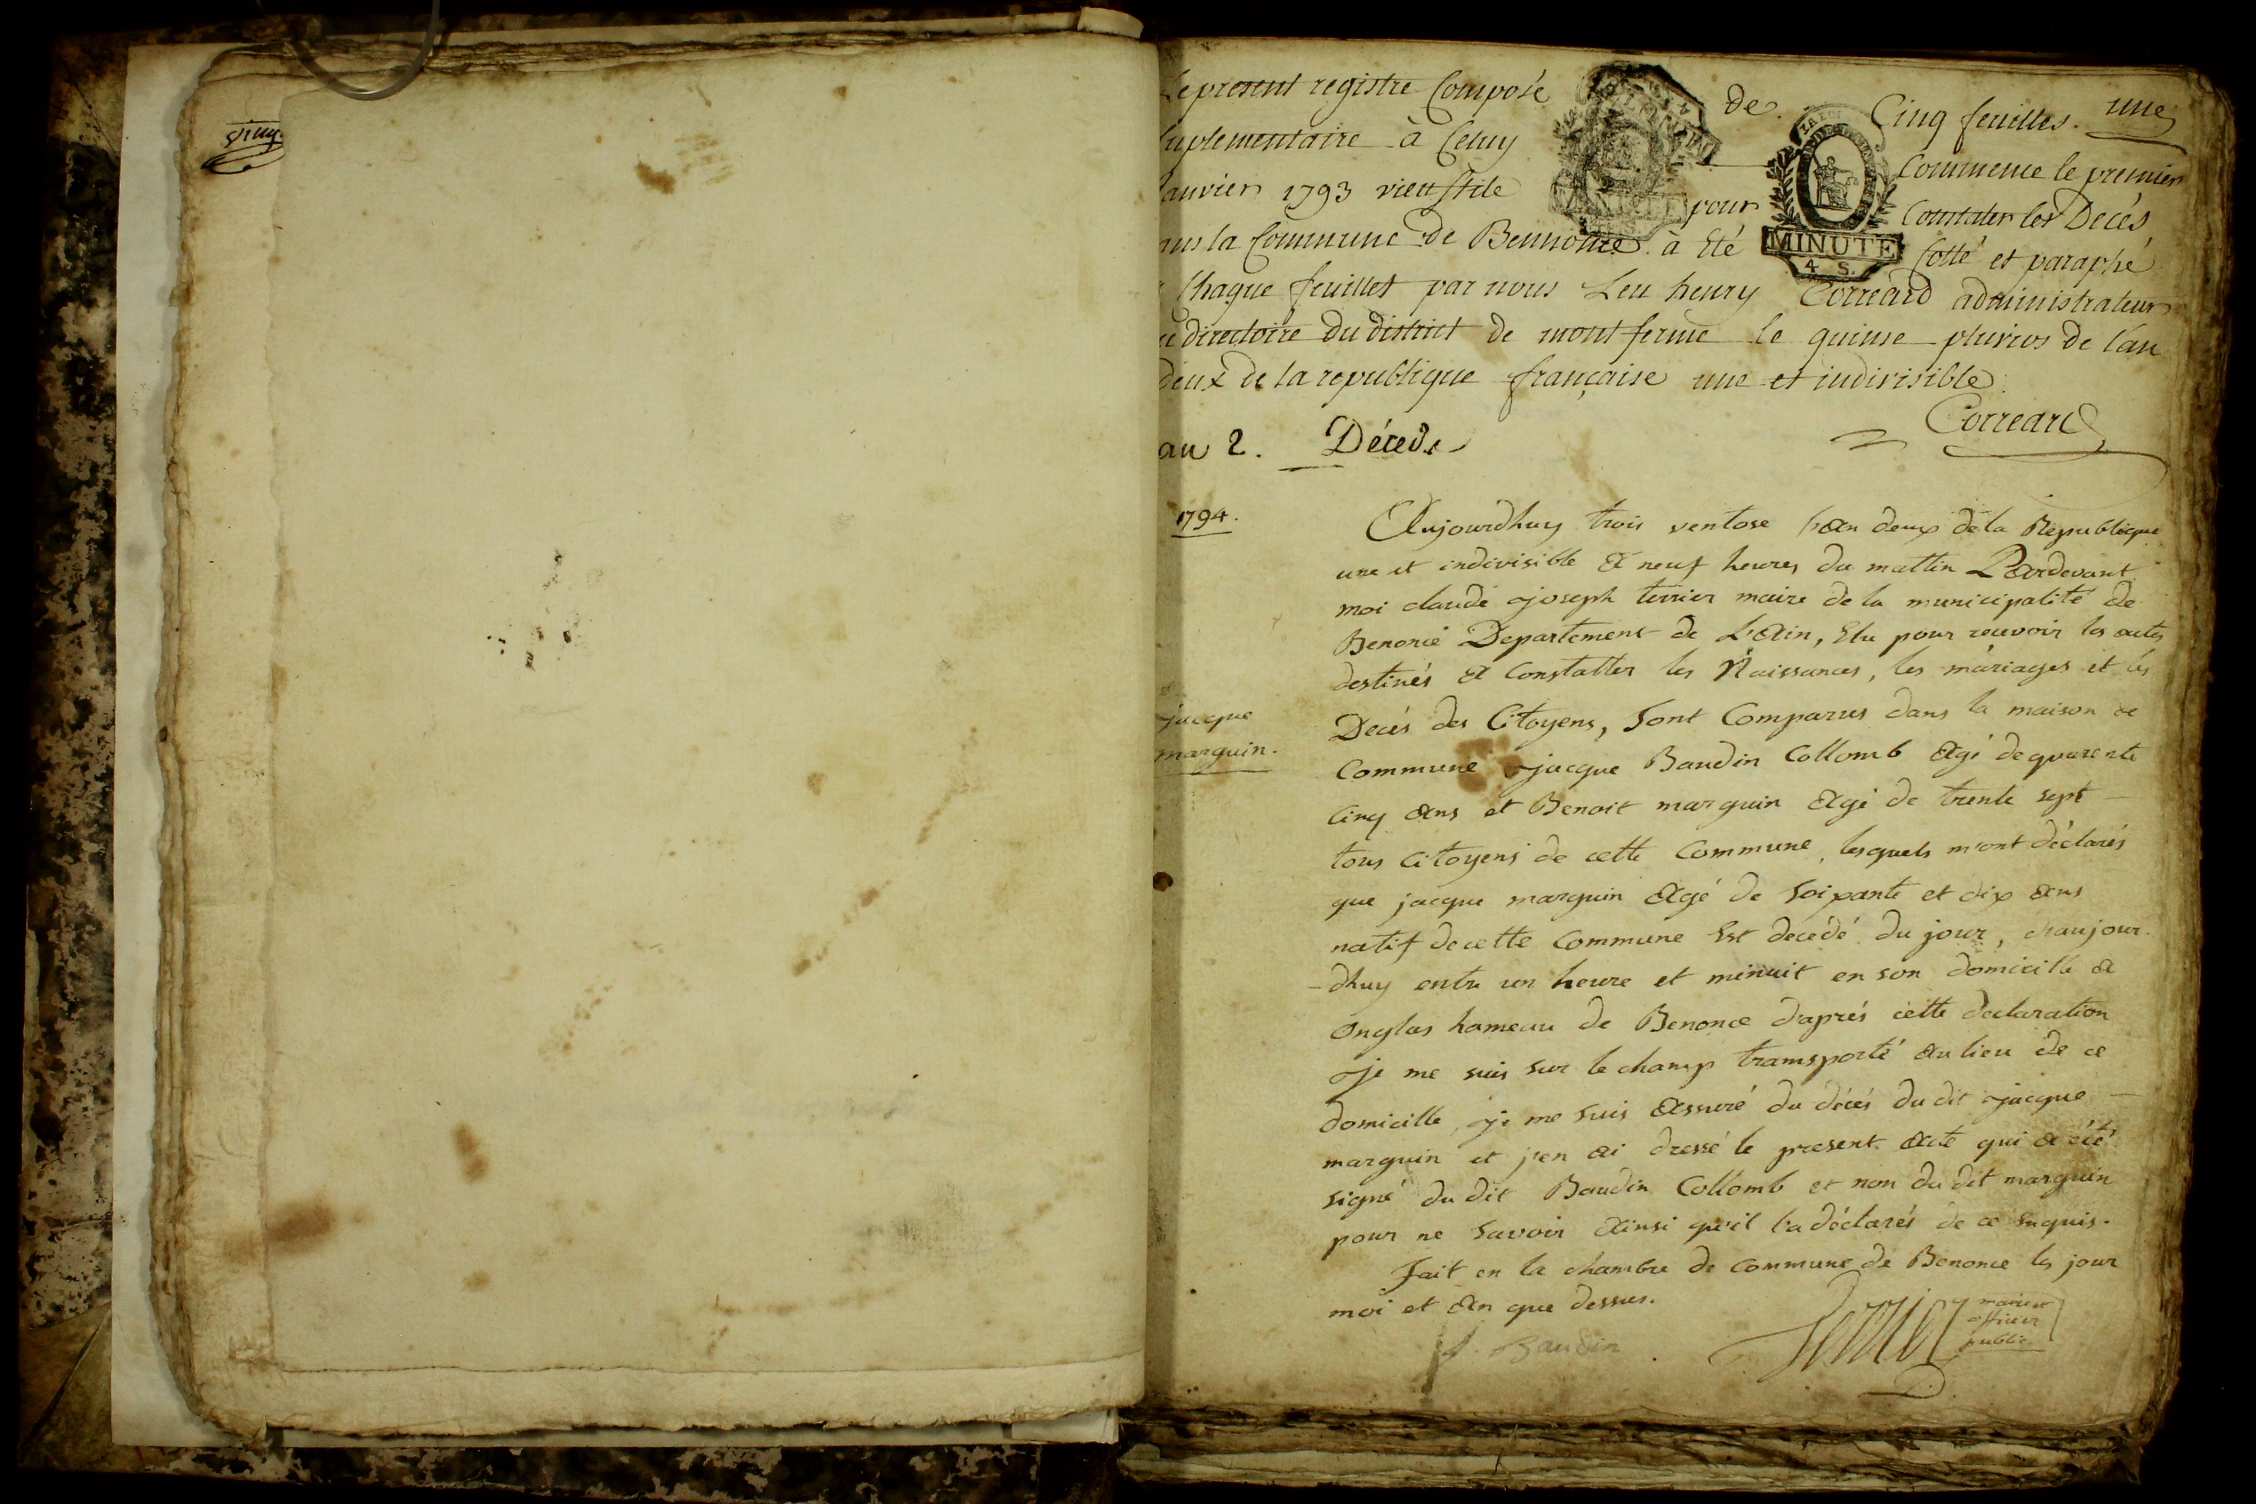 Le present registre Composé de Cinq feuilles. une
suplementaire à Celuy Commence le premier
Janvier 1793 vieu Stile pour Constater les Decés
dans la Commune de Bennonce à Eté Cotté et paraphé
Chaque feuillet par nous Leu henry Correard administrateur
directoire du district de mont ferme le quinse pluvios de l'an
deux de la republique française une et indivisible
Correard
MINUTE
4 S.
an 2. Décedé
1794.
Aujourdhuy trois ventose l'an deux de la Republique
une et indivisible a neuf heures du mattin Pardevant
moi claude joseph terrier maire de la municipalité de
Benonce Departement de L'ain, Elu pour recevoir les actes
destinés a Constatter les Naissances, les mariages et les
Decés des Citoyens, Sont Comparus dans la maison de
Commune jacque Baudin Collomb agé de quarente
Cinq ans et Benoit marguin agé de trente sept
tous Citoyens de cette Commune, lesquels m'ont déclarés
que jacque marguin agé de Soixante et dix ans
natif de cette Commune Est decédé du jour, d'aujour
-dhuy entre un heure et minuit en son domicille a
onglas hameau de Benonce d'aprés cette declaration
je me suis sur le champ transporté au lieu de ce
domicille, je me suis assuré du décés du dit jacque
marguin et j'en ai dressé le present acte qui a été
signé du dit Baudin Collomb et non du dit marguin
pour ne Savoir ainsi qu'il l'a déclarés de ce Enquis.
Fait en la chambre de Commune de Benonce les jour
moi et an que dessus.
jacque
marguin.
J. Baudin
Terrier maire
officier
public